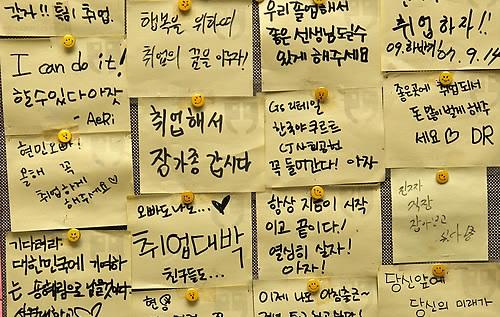 가자!! 특히 취업.
행복을 위하여
취업의 꿈을 이루자!
우리 졸업해서
좋은 선생님 되실수
있게 해주세요
취업하자!!
09. 하반기
09.14
I can do it!
할 수 있다 아잣
- AeRi
취업해서
장가좀 갑시다
GS 리테일
한국야쿠르트
CJ 시푸드
꼭 들어간다! 아자
좋은곳에 취업되서
돈 많이벌게 해주
세요♡ DR
현민오빠!
올해 꼭
취업하게
해주세요♡
오빠도 나도... ♥
취업대박
친구들도...
항상 지금이 시작
이고 끝이다!
열심히 살자!
아자!
진짜
직장
잡아보고
싶다
기다려라
대한민국에 기여하
는
이제 나도
당신앞에
당신의 미래가